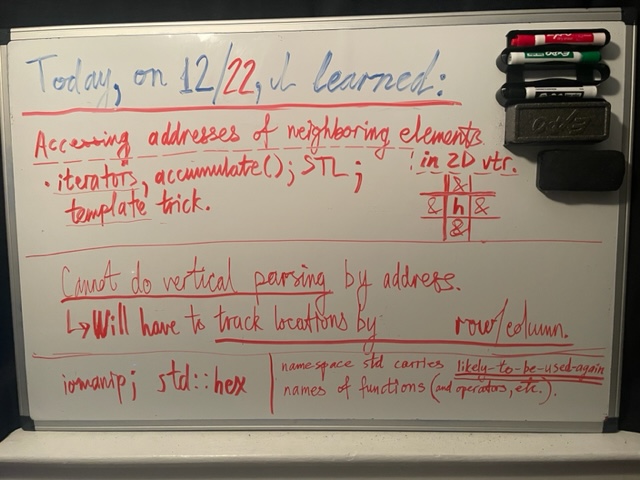 Today, on 12/22, I learned:
Accessing addresses of neighboring elements
in 2D vtr.
· iterators, accumulate(); STL;
template trick.
&
& h &
&
Cannot do vertical parsing by address.
↳ Will have to track locations by row/column.
iomanip; std::hex
namespace std carries likely-to-be-used-again
names of functions (and operators, etc.).